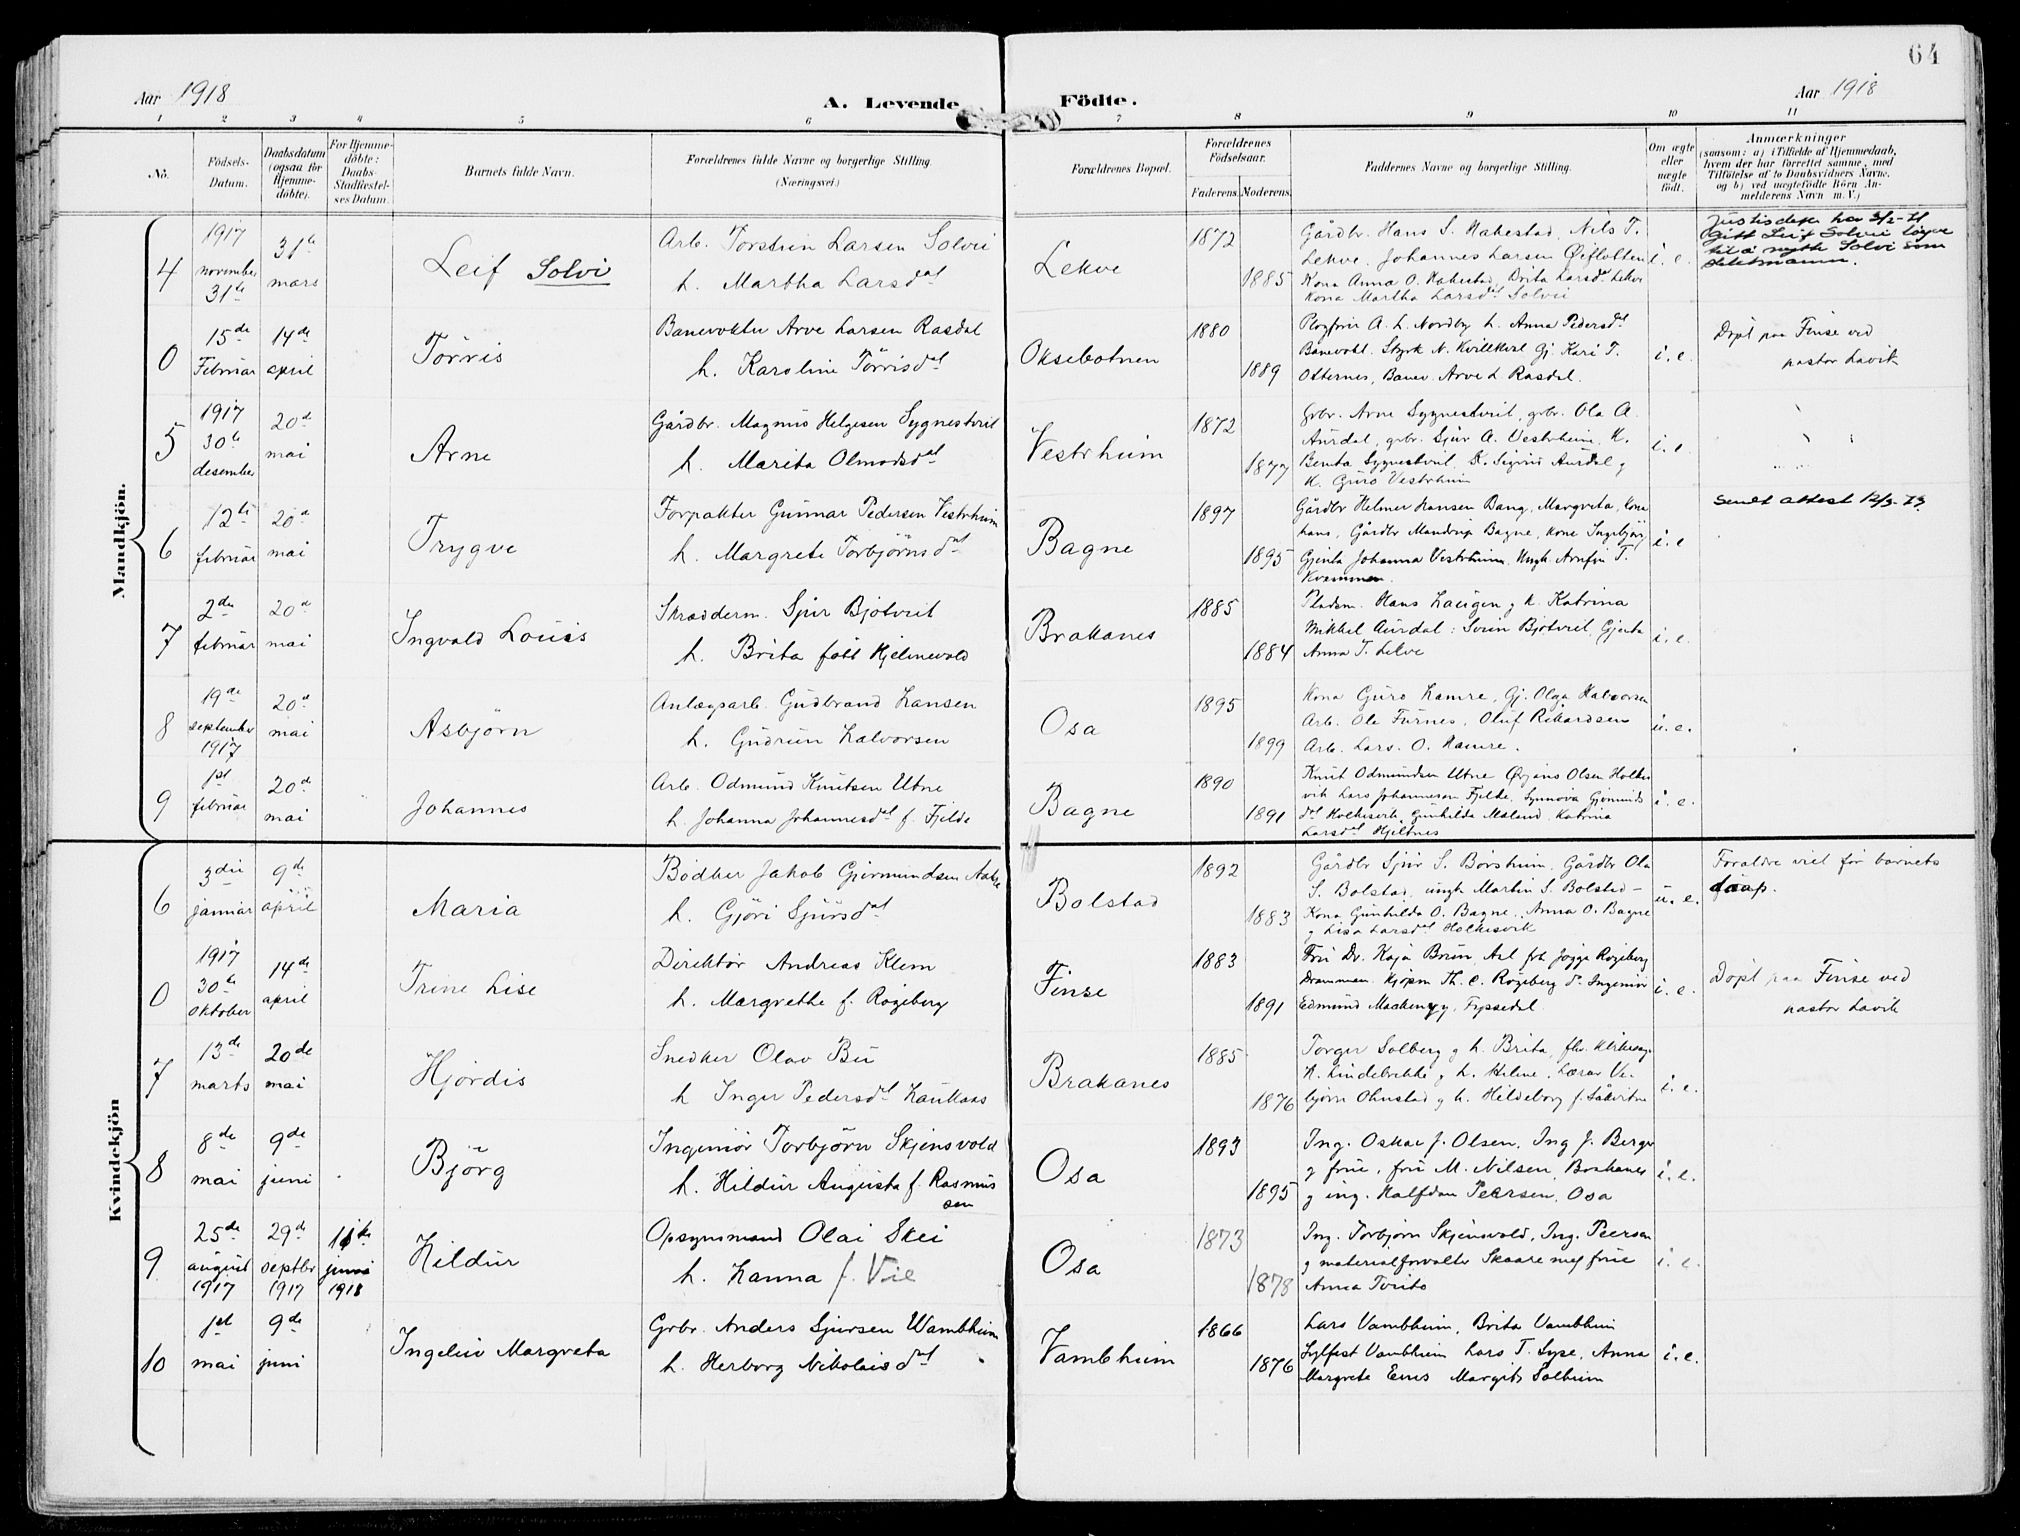 64
Aar 1918
A. Levende Födte.
Aar 1918
1 2 3 4 5 6 7 8 9 10 11
No.
Födsels-
Datum.
Daabsdatum
(ogsaa for
Hjemme-
döbte).
For Hjemme-
döbte:
Daabs-
Stadfæstel-
ses Datum.
Barnets fulde Navn.
Forældrenes fulde Navne og borgerlige Stilling.
(Næringsvei.)
Forældrenes Bopæl.
Forældrenes
Födselsaar.
Faderens. Moderens.
Faddernes Navne og borgerlige Stilling.
Om ægte
eller
uægte
födt.
Anmærkninger
(saasom: a) i Tilfælde af Hjemmedaab,
hvem der har forrettet samme, med
Tilföielse af to Daabsvidners Navne.
og b) ved uægtefödte Börn An-
melderens Navn m. V.)
Mandkjön.
4
1917
november
31te
31te
mars
Leif Solvi
Arb. Torstein Larsen Solvei
h. Martha Larsdat
Lekve
1872
1885
Gårdbr. Hans S. Hakestad, Nils T.
Lekve, Johannes Larsen
Kona Anna O. Hakestad, Brita Larsdat Lekve
Kona Martha Larsdat Solvei
i. e.
0
15de
Februar
14de
april
Törris
Banevokter Arve Larsen Rasdal
h. Karoline Törrisdat
Oksebotnen
1880
1889
A. L. Nordby h. Anna Pedersdat
Banevokt. Styrk N. Kvillkval Gj. Kari T.
Otternes, Banev. Arve L Rasdal.
i. e.
Døpt paa Finse ved
pastor Lavik
5
1917
30te
desember
20d
mai
Arne
Gårdbr. Magnus Helgesen Sygnestveit
h. Marita Olmodsdat
Vestrheim
1872
1877
Grbr. Arne Sygnestveit, grbr. Ola A.
Aurdal, grbr. Sjur A. Vestrheim, K.
Benta Sygnestveit, K. Sigrid Aurdal g
K. Guro Vestrheim
i. e
6
12te
februar
20d
mai
Trygve
Forpakter Gunnar Pedersen Vestrheim
h. Margrete Torbjörnsdat
Bagne
1897
1895
Gårdbr Helmer Hansen Bang, Margreta, kona
hans, Gårdbr Mandrup Bagne, kone Ingebjør,
Gjenta Johanna Vestrheim, Ungk. Arnfin T.
Kvammen.
i. e
Sendt attest 12/3-73
7
2den
februar
20d
mai
Ingvald Louis
Skrædderm. Sjur Bjotveit
h. Brita født Hjelmevold
Brakanes
1885
1884
Pladsm. Hans Haugen g k. Katrina
Mikkel Aurdal: Svein Bjotveit, Gjenta
Anna T. Lekve
i. e.
8
19de
september
1917
20d
mai
Asbjörn
Anlægsarb. Gudbrand Hansen
h. Gudrun Halvorsen
Osa
1895
1899
Kona Guro Hamre, Gj. Olga Halvorsen
Arb. Ole Furnes, Oluf Rikardsen
Arb. Lars. O. Hamre.
u. e.
9
1st
februar
20d
mai
Johannes
Arb. Odmund Knutsen Utne
h. Johanna Johannesdat f. Fjelde
Bagne
1890
1891
Knut Odmundsen Utne Ørjans Olsen Holkes
vik Lars Johannesson Fjelde, Synnøva Gjermunds
dat Holkesvik, Gunhilda Maland, Katrina
Larsdat Hjeltnes
i. e.
Kvindekjön
6
3die
januar
9de
april
Maria
Bödker Jakob Gjermundsen
h. Gjöri Sjursdat
Bolstad
1892
1883
Gårdbr Sjur S. Borsheim, Gårdbr Ola
S. Bolstad, ungk Martin S. Bolstad –
Kona Gunhilda O. Bagne, Anna O. Bagne
g Lisa Larsdat Holkesvik
u. e.
Foraldre viet før barnets
daap.
0
1917
30te
oktober
14de
april
Trine Lise
Direktör Andreas Klem
h. Margrethe f. Rogeberg
Finse
1883
1891
Fru Dr. Kaja Bruun, Axl frk Jogge Rogeberg
Drammen. Kjøpm Th. C. Rogeberg do Ingeniør
Edmund Mackenzy,
i. e.
Døpt paa Finse ved
pastor Lavik
7
13de
marts
20de
mai
Hjördis
Snedker Olav Bu
h Inger Pedersdat Haukaas
Brakanes
1885
1876
Torger Solberg g h. Brita, fhv. kirkesang.
H. Lindebrekke g h. Helene, Lærar Ve-
bjørn Ohnstad g h. Hildeborg f. Såkvitne
i. e.
8
8de
mai
9de
juni
Björg
Ingeniør Torbjörn Skjensvold
h. Hildur Augusta f. Rasmus
sen
Osa
1893
1895
Ing. Oskar J. Olsen, Ing J. Berger
g frue, fru M. Nilsen, Brakanes
g ing. Halfdan Peersen, Osa
i. e.
9
25de
august
1917
29d
septbr
1917
11te
juni
1918
Hildur
Opsynsmand Olai Skei
h. Hanna f. Vie
Osa
1873
1878
Ing. Torbjørn Skjensvold, Ing. Peersen
g materialforvalter Skaare mef frue
Anna Tveito
i. e.
10
1st
mai
9de
juni
Ingeleiv Margreta
Grbr. Anders Sjursen Wambheim
h. Herborg Nikolaisdat
Vambheim
1866
1876
Lars Vambheim, Brita Vambheim
Sylfest Vambheim Lars T. Syse, Anna
Margreta Eines Margit Solheim
i. e.